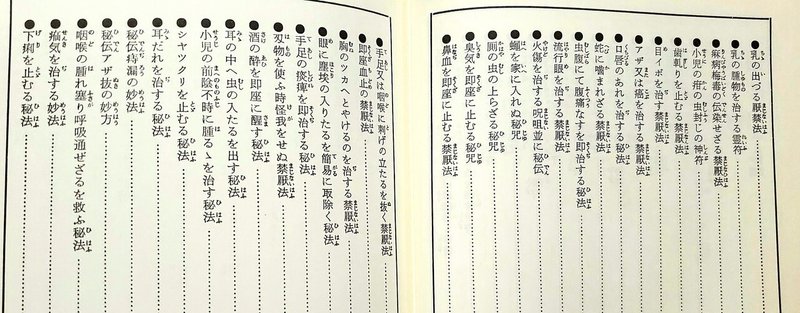 ●乳の出づる厭禁法
●乳の腫物を治する霊符
●麻病梅毒の伝染せざる禁厭法
●小児の疳の虫封じの神符
●歯軋りを止むる禁厭法
●目イボを治す禁厭法
●アザ又は痣を治する禁厭法
●口唇のあれを治する禁厭法
●蛇に噛まれざる禁厭法
●虫腹にて腹痛なすを即治する秘法
●流行眼を治する禁厭法
●火傷を治する呪咀並に秘伝
●蝿を家に入れぬ秘咒
●厠の虫の上らざる秘咒
●臭気を即座に止むる秘咒
●鼻血を即座に止むる禁厭法
●手足又は咽喉に刺げの立たるを抜く禁厭法
●即座血止の禁厭法
●胸のツカへとやけるのを治する禁厭法
●眼に塵埃の入りたるを簡易に取除く秘法
●手足の痰痺を即治する秘法
●刃物を使ふ時怪我をせぬ禁厭法
●酒の酔を即座に醒す秘法
●耳の中へ虫の入たるを出す秘法
●小児の前陰不時に腫るゝを治す秘法
●シヤツクリを止むる秘法
●耳だれを治する秘法
●秘伝痔漏の妙法
●秘伝アザ抜の妙方
●咽喉の腫れ塞り呼吸通ぜざるを救ふ秘法
●疝気を治する妙法
●下痢を止むる秘法